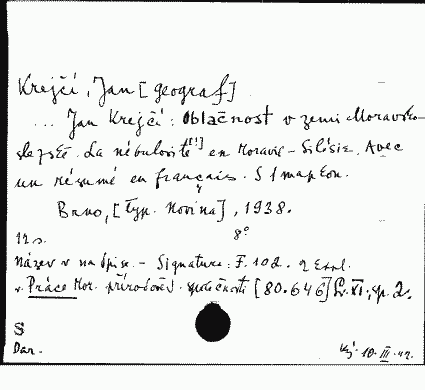 Krejčí, Jan [geograf]
... Jan Krejčí: Oblačnost v zemi Moravsko-
slezské. La nébulosité [!] en Moravie-Silésie. Avec
un résumé en français. S 1 mapkou.
Brno, [typ. Novina], 1938.
8°
12 s.
Název v nadpise. - Signatura: F. 102. 2 expl.
v. Práce Mor. přírodověd. společnosti [80.646] Sv. XI, sp. 2.
S
Dar.
Kj. 10. III. 42.